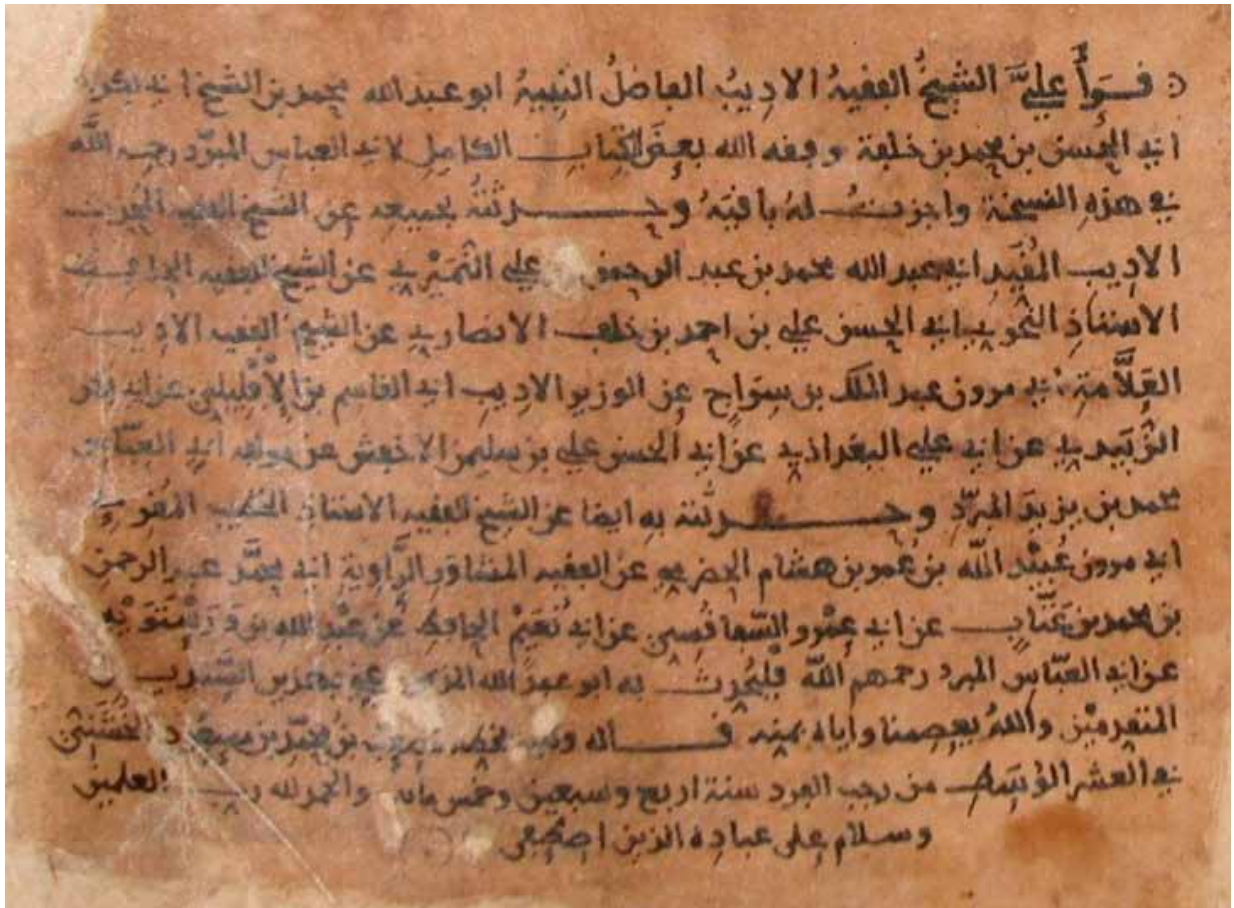 قرأ علي الشيخُ الفقيهُ الاديبُ الفاضلُ النبيهُ ابو عبد الله محمد بن الشيخ
ابي الحسن بن محمد بن خلفة وفقه الله بعض كتاب الكامل لابي العباس المبرد رحمه الله
في هذه النسخة واجزتُ لهُ باقيَهُ وحدثتهُ بجميعه عن الشيخ الفقيه
الاديب المُفيد ابي عبد الله محمد بن عبد الرحمن علي النُّمَيْري عن الشيخ الفقيه
الاستاذ النحوي ابي الحسن علي بن احمد بن خلف الانصاري عن الشيخ الفقيه الاديب
العَلَّامة ابي مرون عبد الملك بن سِراج عن الوزير الاديب ابي القاسم بن الإفليلي عن ابي بكر
الزُّبَيدي عن ابي علي البغداذي عن ابي الحسن علي بن سليمن الاخفش عن ابي العبّاس
محمد بن يزيد المبرّد وحدثته به ايضا عن الشيخ الفقيه الاستاذ الخطيب المُقرِئ
ابي مرون عُبَيْد اللّه بن عُمر بن هشام الحضرمي عن الفقيه المشاوَر الرَّاوية ابي محمَّد عبد الرحمن
بن محمد بن عَتَّاب عن ابي عَمْرو السَّفاقُسي عن ابي نُعَيْم الحافظ عن عَبْد الله بن دَرَسْتَوَيْه
عن ابي العبّاس المبرد رحمهم اللّه فليُحدث به ابو عبد الله
المتقدمَيْن واللهُ يعصمنا واياه بمنه قاله وكتب بخطه مُصعَب بنُ محمَّد بن مسعُود الخُشَنيّ
في العشر الوُسَط من رجب الفرد سنة اربع وسبعين وخمس مائة والحمد لله رب العلمين
وسلام على عباده الذين اصطفى